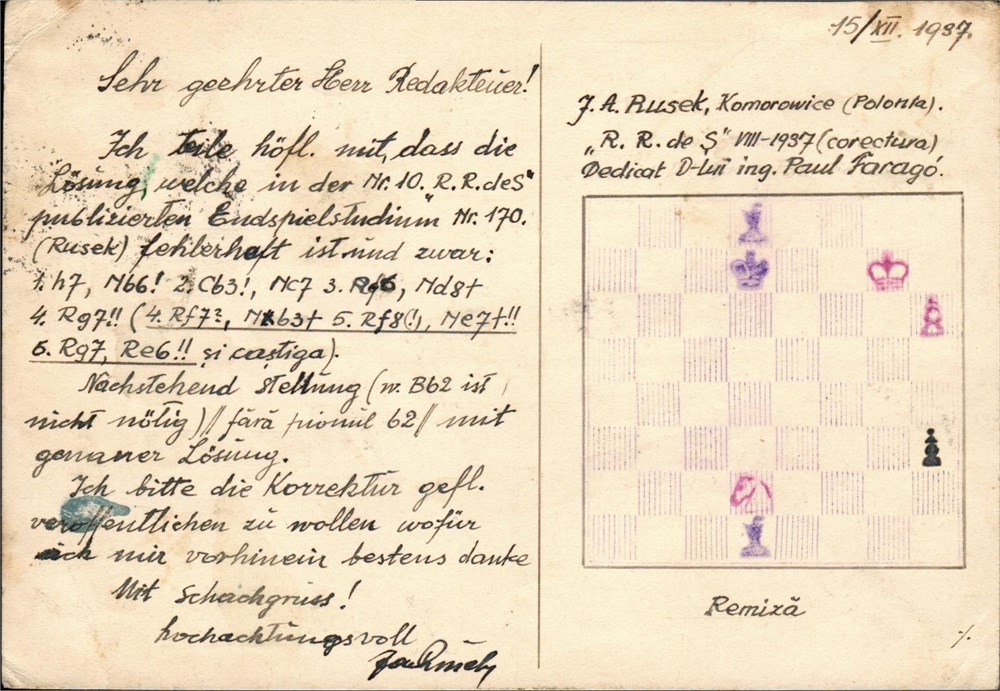 15/XII. 1937.
Sehr geehrter Herr Redakteuer!
Ich teile höfl. mit, dass die
Lösung, welche in der Nr. 10. R. R. de Ș"
publizierten Endspielstudium" Nr. 170.
(Rusek) fehlerhaft ist und zwar:
1. h7, Nb6! 2. Cb3!, Nc7 3. Rg6, Nd8+
4. Rg7!! (4. Rf7?, N:b3+ 5. Rf8(!), Ne7+!!
6. Rg7, Re6!! și caștiga).
Nachstehend Stellung (w. Bb2 ist
nicht nötig) // fără pionul b2 // mit
genauer Lösung.
Ich bitte die Korrektur gefl.
veröffentlichen zu wollen wofür
ich mir vorhinein bestens danke
Mit Schachgruss!
hochachtungsvoll
J. A. Rusek, Komorowice (Polonia).
„R. R. de Ș" VIII-1937 (corectura)
Dedicat D-lui ing. Paul Faragó.
Remiză
·/.